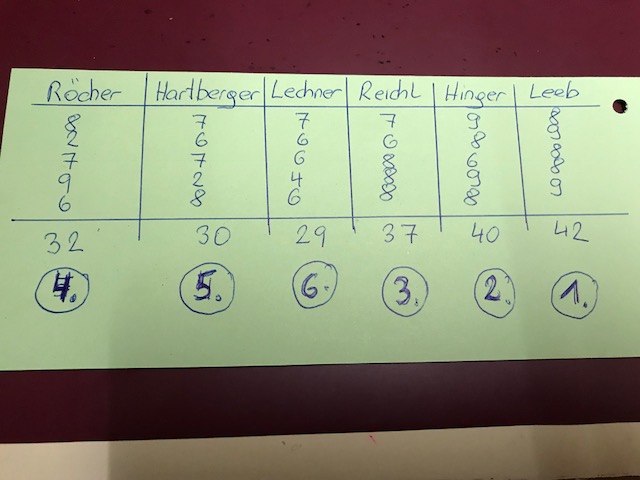 Röcher Hartberger Lechner Reichl Hinger Leeb
8 7 7 7 9 8
2 6 6 6 8 9
7 7 6 8 6 8
9 2 4 8 9 8
6 8 6 8 8 9
32 30 29 37 40 42
4. 5. 6. 3. 2. 1.